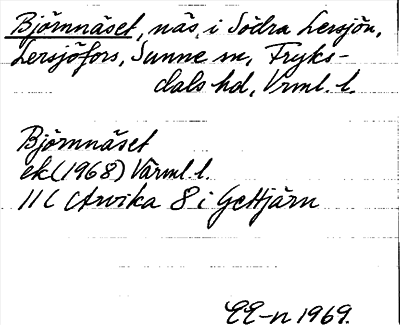 Björnnäset, näs i Södra Lersjön,
Lersjöfors, Sunne sn, Fryks-
dals hd, Vrml. l.
Björnnäset
ek (1968) Värml. l.
11 C Arvika 8 i Gettjärn
EE-n 1969.